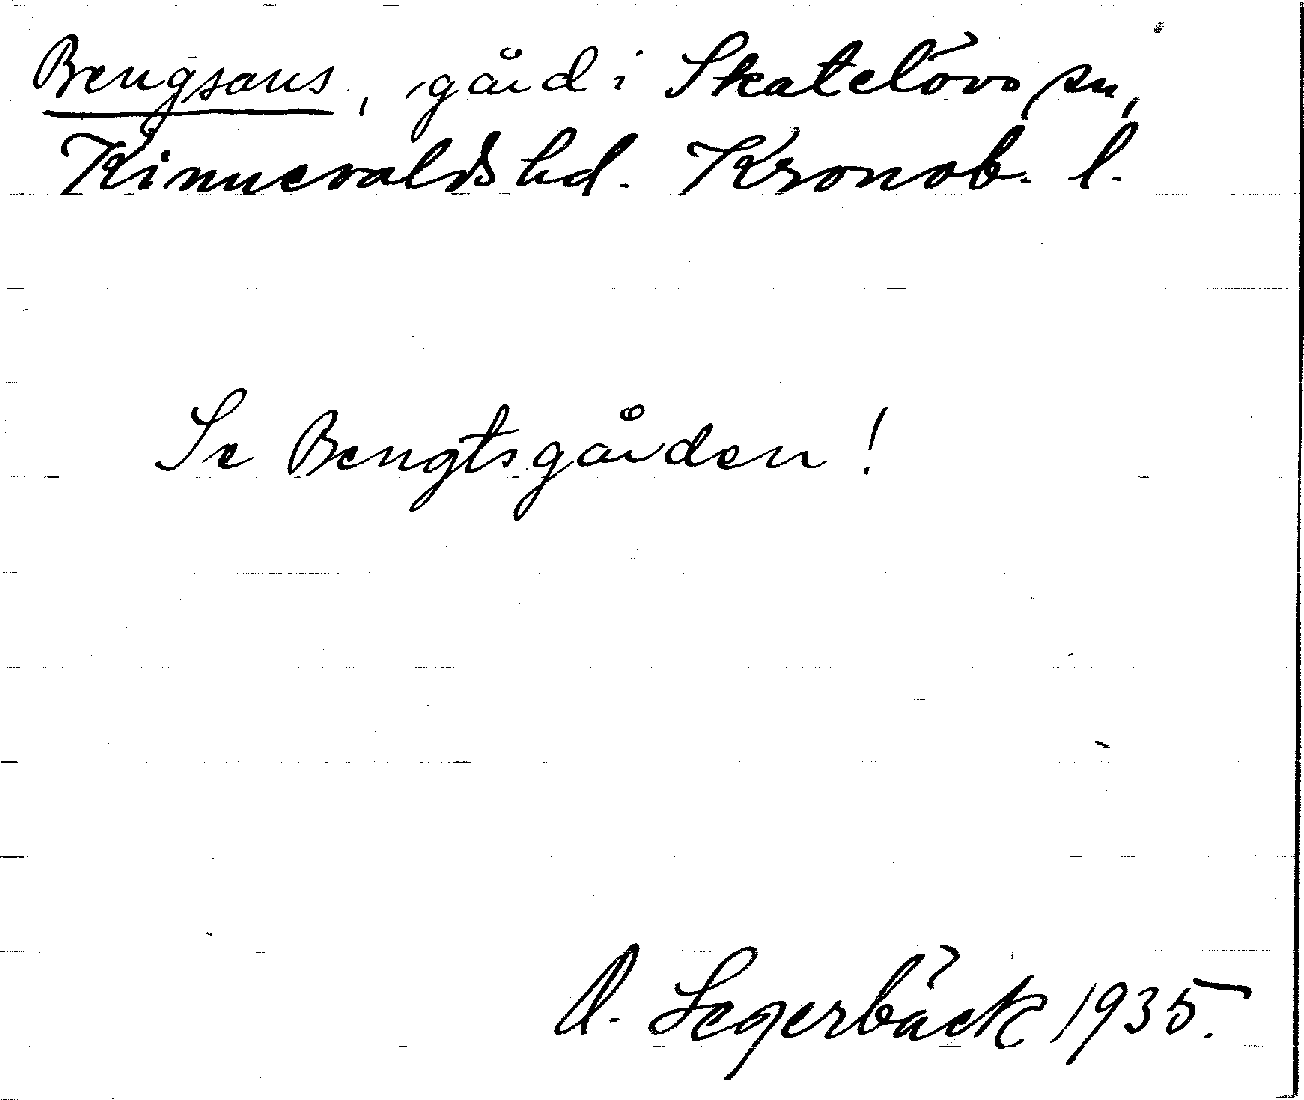 Bengsans, gård i Skatelövs sn,
Kinnevalds hd. Kronob. l.
Se Bengtsgården!
A. Segerbäck 1935.